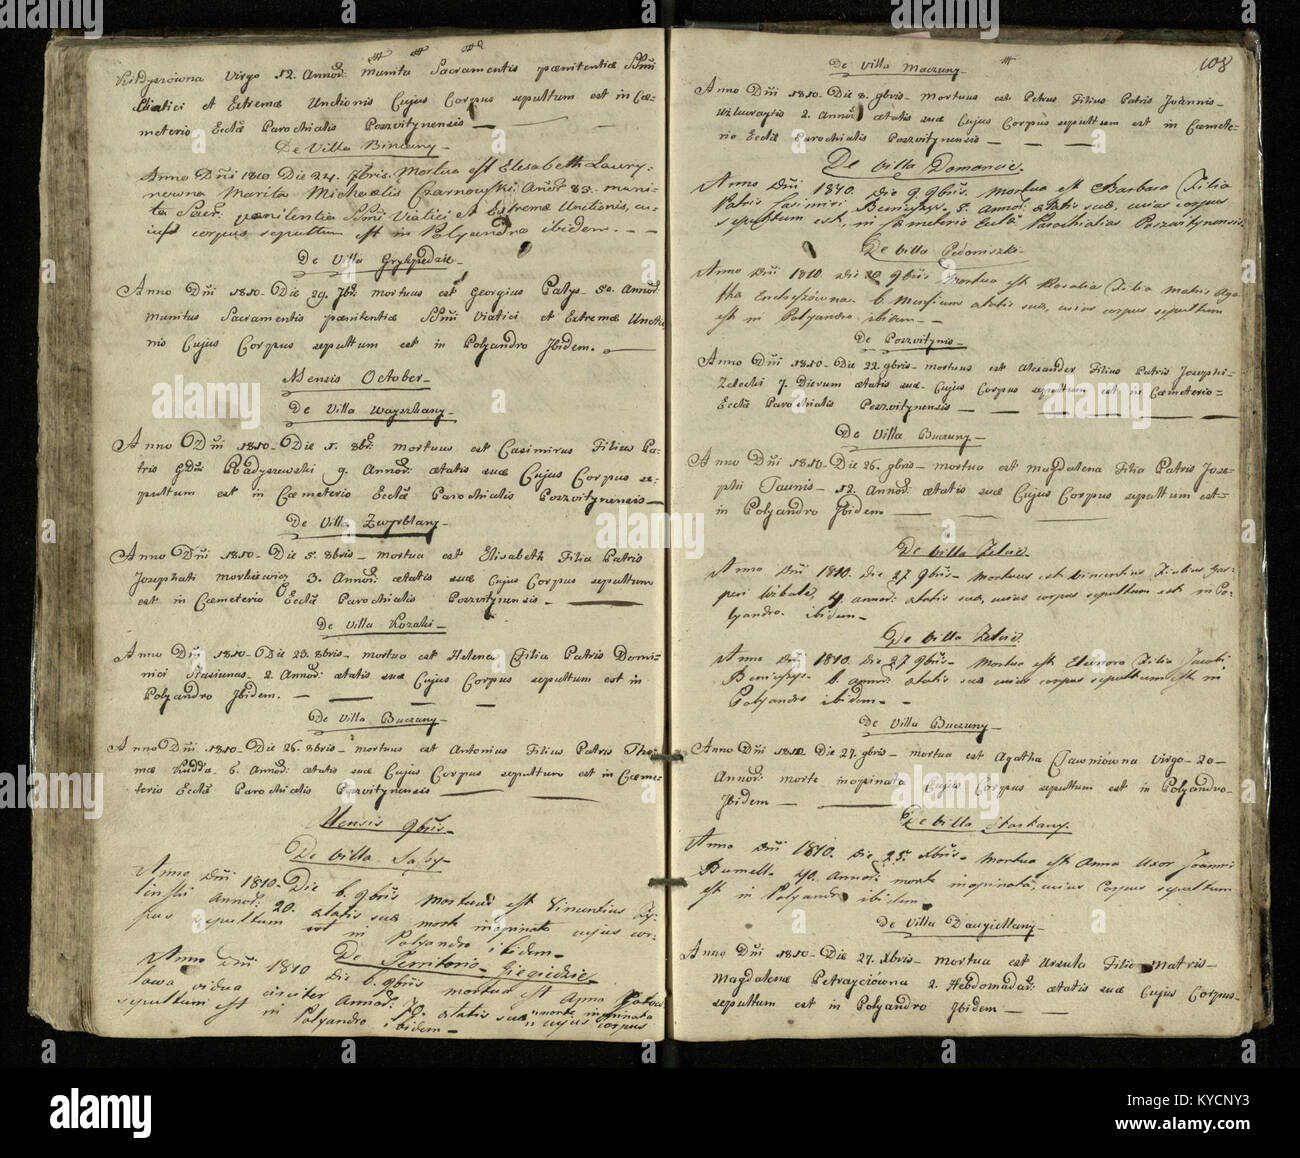 Virgo 12. Annor: munita Sacramentis pœnitentiæ SSmi
Viatici et Extremæ Unctionis Cujus Corpus sepultum est in Cæ-
meterio Ecclæ Parochialis Poszvitynensis
De Villa Binkuny
Anno Dñi 1810 Die 24. 7bris. Mortua est Elisabeth Laury-
nowna Marita Michaelis Czarnowski Annor 83. muni-
ta Sacr. pænitentia SSmi Viatici et Extremæ Unctionis, cu-
ius corpus sepultum est in Polyandro ibidem.
De Villa Grykpedzie
Anno Dñi 1810 Die 29. 7br: mortuus est Georgius Patys 50. Annor:
munitus Sacramentis pœnitentiæ SSmi Viatici et Extremæ Uncti-
nis Cujus Corpus sepultum est in Polyandro Ibidem.
Mensis October
De Villa Wayszkany
Anno Dñi 1810 Die 1. 8br: mortuus est Casimirus Filius Pa-
tris Gdni Radyszewski 9. Annor: ætatis suæ Cujus Corpus se-
pultum est in Cæmeterio Ecclæ Parochialis Poszvitynensis
De Villa Zwyrblany
Anno Dñi 1810 Die 5. 8bris mortua est Elisabeth Filia Patris
Josephati Morkiewicz 3. Annor: ætatis suæ Cujus Corpus sepultum
est in Cæmeterio Ecclæ Parochialis Poszvitynensis
De Villa Kozaki
Anno Dñi 1810 Die 23. 8bris mortua est Helena Filia Patris Domi-
nici Stasiunas 2. Annor: ætatis suæ Cujus Corpus sepultum est in
Polyandro Ibidem.
De Villa Buczuny
Anno Dñi 1810 Die 26. 8bris mortuus est Antonius Filius Patris Tho-
mæ Kudda 6. Annor: ætatis suæ Cujus Corpus sepultum est in Cæme-
terio Ecclæ Parochialis Poszvitynensis
Mensis 9bris
De Villa
Anno Dñi 1810. Die 6. 9bris mortuus est Vincentius
Annor: 20. ætatis suæ morte inopinata cujus cor-
pus sepultum est in Polyandro ibidem
De Territorio Giegiedzie
Anno Dñi 1810 Die 6. 9bris mortua est Anna
vidua circiter Annor: 70. ætatis suæ morte inopinata
cujus corpus
sepultum est in Polyandro ibidem
108
De Villa Maczuny
Anno Dñi 1810 Die 8. 9bris mortuus est Petrus Filius Patris Joannis
2. Annor: ætatis suæ Cujus Corpus sepultum est in Cæmete-
rio Ecclæ Parochialis Poszvitynensis
De Villa Domancie.
Anno Dñi 1810. Die 9 9bris. Mortua est Barbara Filia
Patris Casimiri 5. Annor: ætatis suæ, cuius corpus
sepultum est, in Cæmeterio Ecclæ Parochialis Poszvitynensis.
De Villa Pedoniszki
Anno Dñi 1810. Die 20 9bris Mortua est Rosalia Filia matris Aga-
tha 6. Mensium ætatis suæ, cuius corpus sepultum
est in Polyandro ibidem
De Poszvitynis
Anno Dñi 1810 Die 22. 9bris mortuus est Alexander Filius Patris Josephi
Zelecki 7. Dierum ætatis suæ Cujus Corpus sepultum est in Cæmeterio
Ecclæ Parochialis Poszvitynensis
De Villa Buczuny
Anno Dñi 1810 Die 26. 9bris mortua est Magdalena Filia Patris Jose-
phi Jaunis 12. Annor: ætatis suæ Cujus Corpus sepultum est
in Polyandro Ibidem
De Villa Zelwie.
Anno Dñi 1810. Die 27 9bris Mortuus est Vincentius Filius Gas-
peri 4 annor: ætatis suæ, cuius corpus sepultum est in Po-
lyandro ibidem
De Villa Zelwie.
Anno Dñi 1810. Die 27 9bris Mortua est Eleonora Filia Jacobi
6. annor: ætatis suæ cuius corpus sepultum est in
Polyandro ibidem
De Villa Buczuny
Anno Dñi 1810 Die 27. 9bris mortua est Agatha Virgo 20
Annor: morte inopinata Cujus Corpus sepultum est in Polyandro
Ibidem
De Villa
Anno Dñi 1810. Die 25. Xbris Mortua est Anna Uxor Joanni
40. Annor: morte inopinata, cuius Corpus sepultum
est in Polyandro ibidem
De Villa Daugiellany
Anno Dñi 1810 Die 27. Xbris mortua est Ursula Filia Matris
Magdalenæ Petrayciówna 2. Hebdomadar: ætatis suæ Cujus Corpus
sepultum est in Polyandro Ibidem
alamy
Image ID: KYCNY3
www.alamy.com